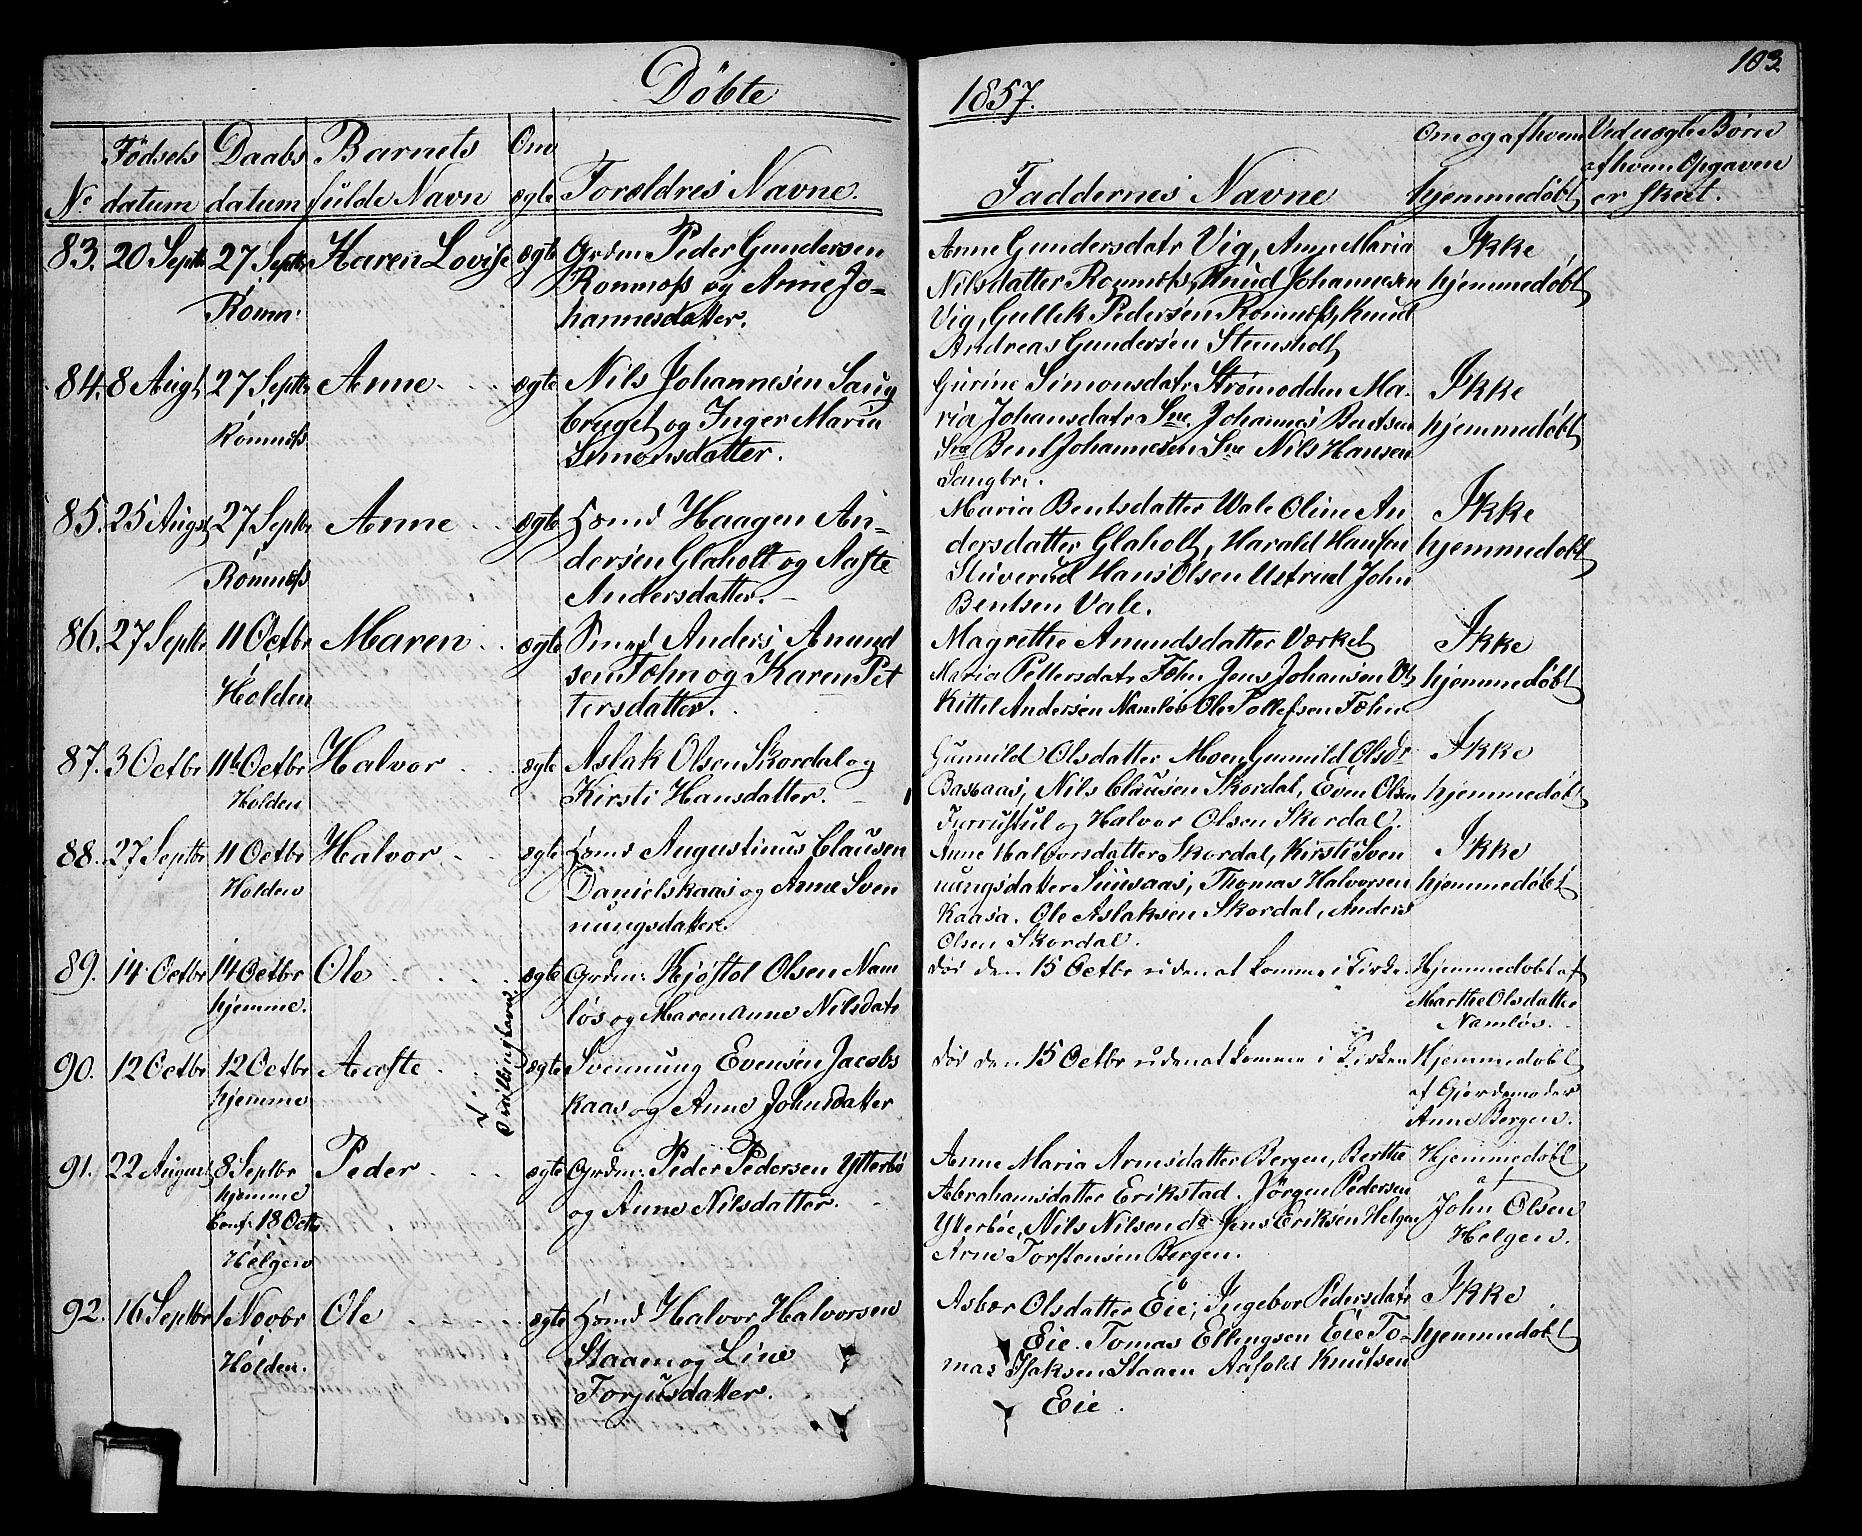 103.
Döbte
1857.
No
Födsels
datum
Daabs
datum
Barnets
fulde Navn
Om
ægte
Forældres Navne.
Faddernes Navne
Om og af hvem
hjemmedöbt
Ved uægte Börn
af hvem Opgaven
er skeet.
83. 20 Septbr 27 Septbr Karen Lovise ægte Grdm. Peder Gundersen
Romn:
Romnæss og Anne Jo-
hannesdatter.
Anne Gundersdatr Vig, Anne Maria
Nilsdatter Romnæss, Knud Johannesen
Vig, Gullek Pedersen Romnæss, Knud
Andreas Gundersen Steensholt
Ikke
hjemmedöbt
84. 8 Augt 27 Septbr Anne ægte Nils Johannesen Saug
Romnæss
bruget og Inger Maria
Simonsdatter.
Gurine Simonsdatr Strömodden Ma-
ria Johansdatr Sne. Johannes Bentsen
Sne Bent Johannesen Sne Nils Hansen
Saugbr.
Ikke
hjemmedöbt
85. 25 Augst 27 Septbr Anne ægte Huusmd Haagen An-
Romnæss
dersen Glaholt og Aaste
Andersdatter.
Maria Bentsdatter Vale Oline An
dersdatter Glaholt, Harald Hansen
Stuverud Hans Olsen Ustrud John
Bentsen Vale.
Ikke
hjemmedöbt
86. 27 Septbr 11 Octbr Maren ægte Anders Amund
Holden
sen Fæhn og Karen Pet
tersdatter.
Magrethe Amundsdatter Værket
Maria Pettersdatr Fæhn Jens Johansen
Kittel Andersen Namlös Ole Tollefsen Fæhn
Ikke
hjemmedöbt
87. 3 Octbr 11te Octbr Halvor ægte Aslak Olsen Skordal og
Holden
Kirsti Hansdatter.
Gunnild Olsdatter Moen Gunnild Olsdr
Baskaas, Nils Clausen Skordal, Even Olsen
og Halvor Olsen Skordal.
Ikke
hjemmedöbt
88. 27 Septbr 11 Octbr Halvor ægte Huusmd Augustinus Clausen
Holden
Danielskaas og Anne Sven
nungsdatter.
Anne Halvorsdatter Skordal, Kirsti Sven
nungsdatter Thomas Halvorsen
Kaasa. Ole Aslaksen Skordal, Anders
Olsen Skordal.
Ikke
hjemmedöbt
89. 14 Octbr 14 Octbr Ole ægte Grdm: Kjöstol Olsen Nam
hjemme.
lös og Maren Anne Nilsdatr
död den 15 Octbr uden at komme i Kirke
Hjemmedöbt af
Marthe Olsdatter
Namlös.
90. 12 Octbr 12 Octbr Aaste Tvillingbarn. ægte Svennung Evensen Jacobs
hjemme
kaas og Anne Johnsdatter
död den 15 Octbr uden at komme i Kirken
Hjemmedöbt
af Gjordemoder
Anne Bergen.
91. 22 August 8 Septbr Peder ægte Grdm: Peder Pedersen Ytterbö
hjemme
Conf: 18 Octr
Helgen
og Anne Nilsdatter.
Anne Maria Arnesdatter Bergen, Berthe
Abrahamsdatter Erikstad. Jörgen Pedersen
Ytterböe, Nils Nilsen do Jens Eriksen Helgen
Arne Torstensen Bergen.
Hjemmedöbt
af
John Olsen
Helgen.
92. 16 Septbr 1 Novbr Ole ægte Huusmd Halvor Halvorsen
Holden.
Staaen og Line
Torjusdatter.
Asbör Olsdatter Eie, Ingebor Pedersdatr
Eie. Tomas Ellingsen Eie To-
mas Isaksen Staaen Aasold Knutsen
Eie.
Ikke
hjemmedöbt